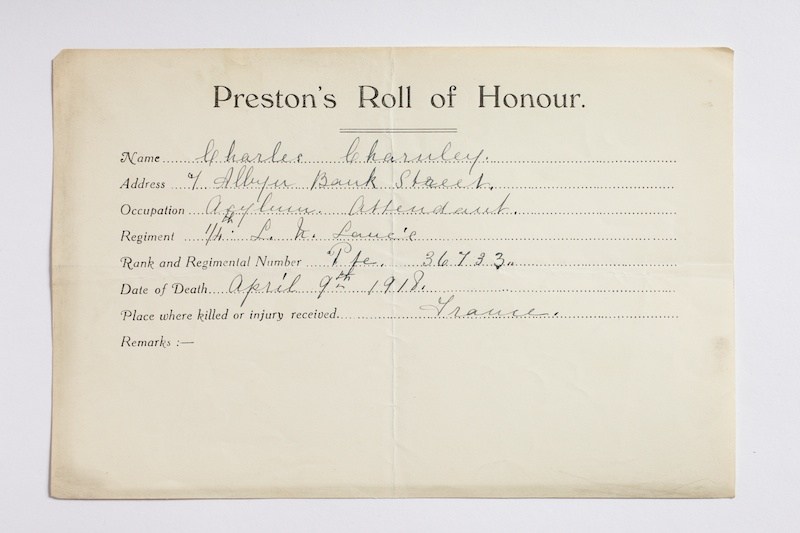 Preston's Roll of Honour.
Name Charles Charnley.
Address 7 Albyn Bank Street.
Occupation Asylum Attendant.
Regiment 1/4th L. N. Lanc's
Rank and Regimental Number Pte. 36733.
Date of Death April 9th 1918.
Place where killed or injury received. France.
Remarks :—